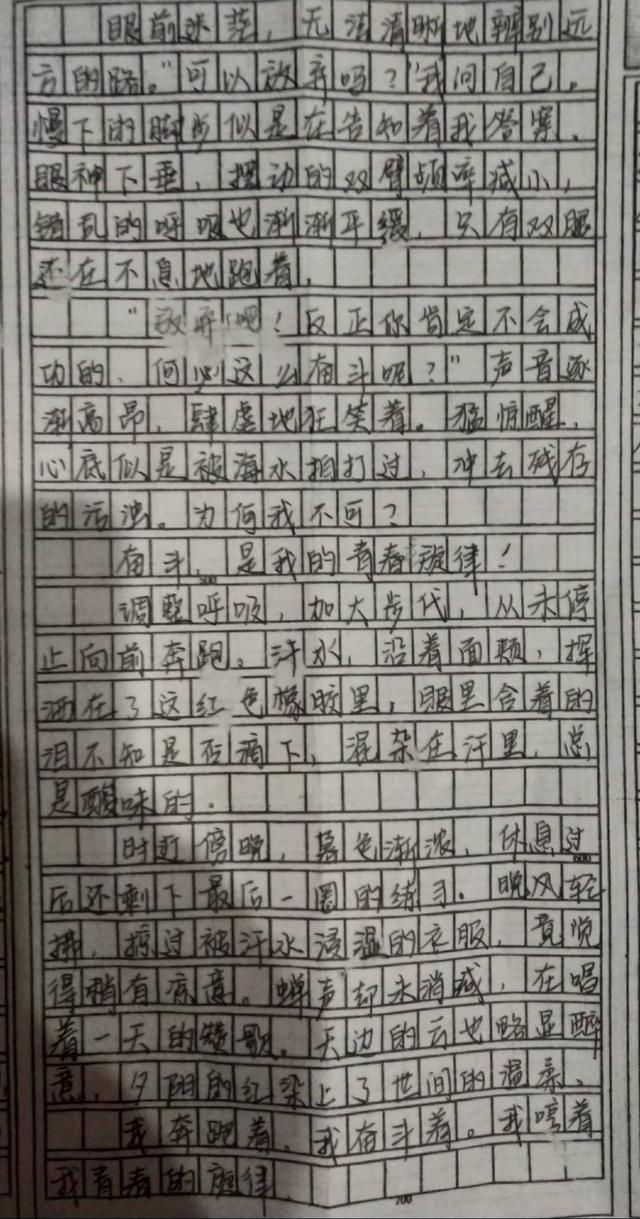 眼前迷茫，无法清晰地辨别远
方的路。"可以放弃吗？"我问自己。
慢下的脚步似是在告知着我答案，
眼神下垂，摆动的双臂频率减小，
错乱的呼吸也渐渐平缓，只有双腿
还在不息地跑着。
"放弃吧！反正你肯定不会成
功的，何必这么奋斗呢？"声音逐
渐高昂，肆虐地狂笑着。猛惊醒，
心底似是被海水拍打过，冲去残存
的污浊。为何我不可？
奋斗，是我的青春旋律！
500
调整呼吸，加大步代，从未停
止向前奔跑。汗水，沿着面颊，挥
洒在了这红色橡胶里，眼里含着的
泪不知是否滴下，混杂在汗里，总
是酸味的。
时近傍晚，暮色渐浓，休息过
600
后还剩下最后一圈的练习。晚风轻
拂，掠过被汗水浸湿的衣服，竟觉
得稍有凉意。蝉声却未消减，在唱
着一天的赞歌。天边的云也略显醉
意，夕阴的红染上了世间的温柔。
我奔跑着，我奋斗着。我哼着
我青春的旋律
700